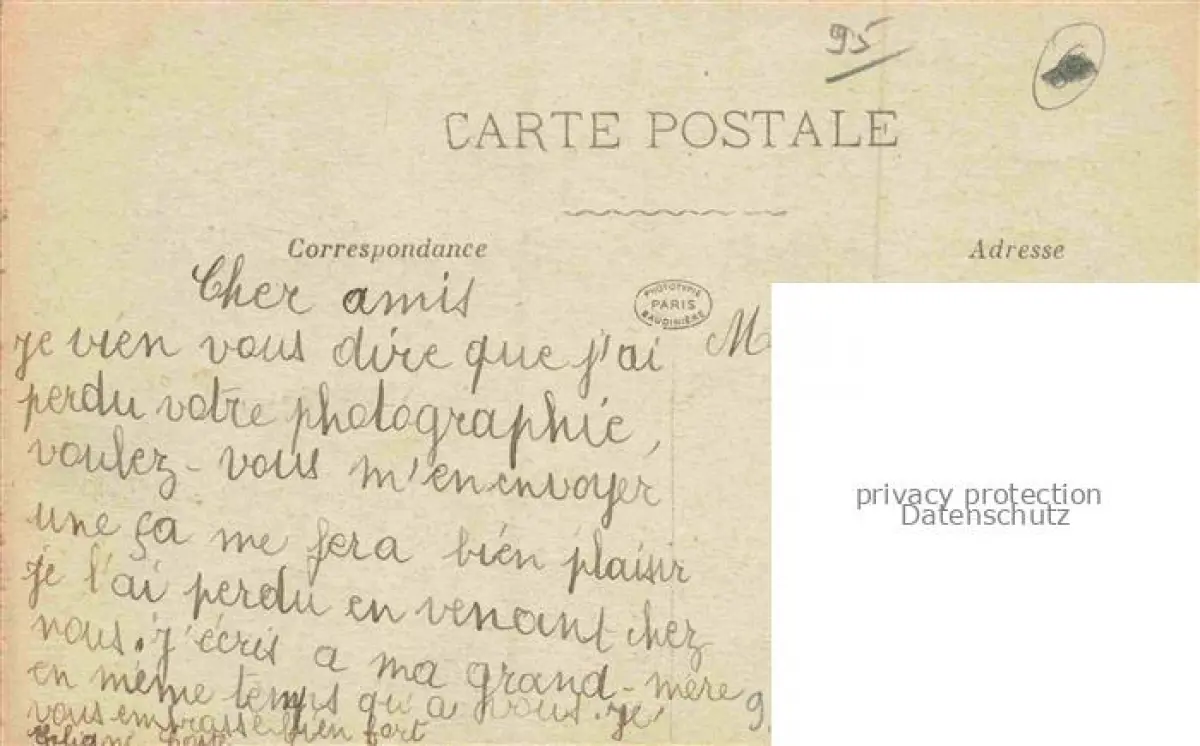 95
CARTE POSTALE
Correspondance
Adresse
PHOTOTYPIE
PARIS
BAUDINIÈRE
Cher amis
M
je vien vous dire que j'ai
perdu votre photographie,
voulez-vous m'en envoyer
une ça me fera bien plaisir
je l'ai perdu en venant chez
nous. j'écris a ma grand-mère
en même temps qu'à vous. je
vous embrasse bien fort
9
privacy protection
Datenschutz